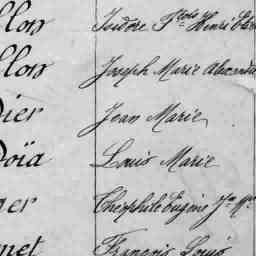 llon Isidore Henri
llon Joseph Marie Alexandre
dier Jean Marie
doïa Louis Marie
ner Théophile Eugène Jn Mie
met François Louis